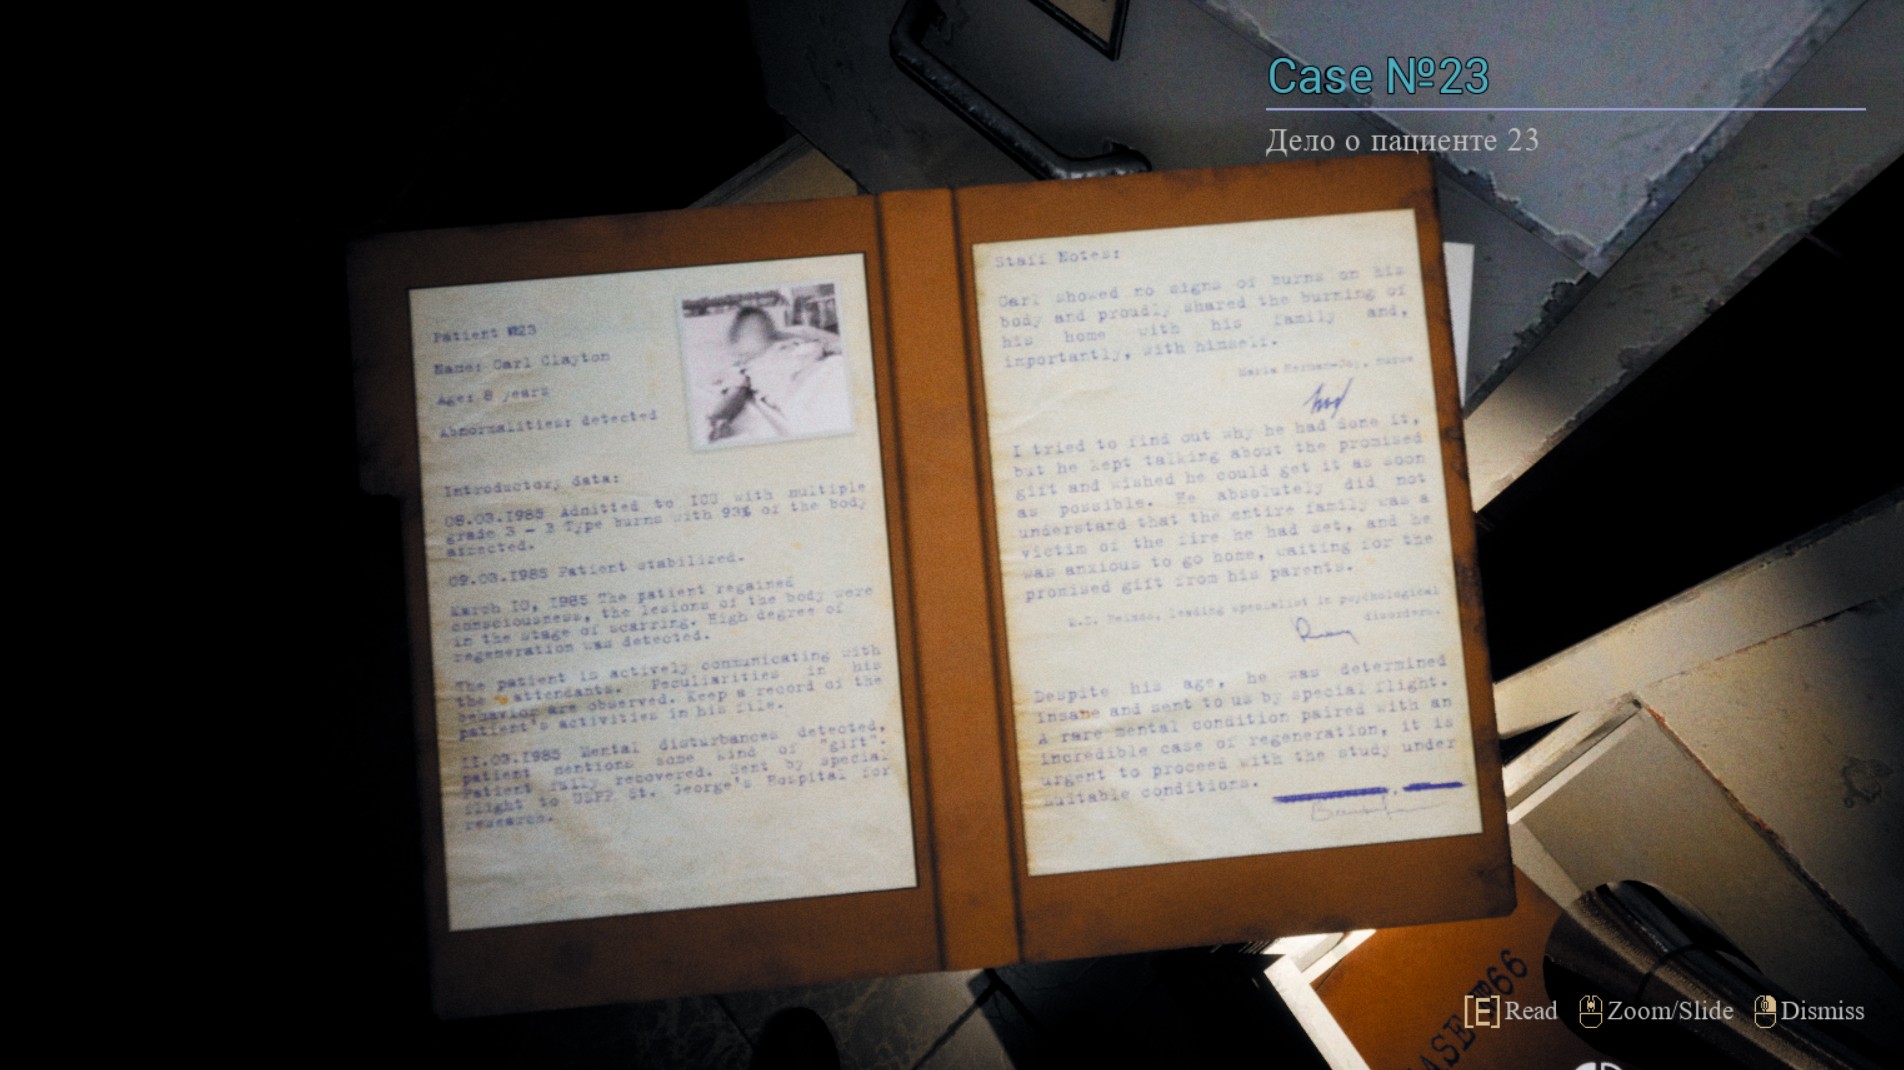 Case №23
Дело о пациенте 23
Patient №23
Name: Carl Clayton
Age: 8 years
Abnormalities: detected
Introductory data:
08.03.1985 Admitted to ICU with multiple
grade 3 - B Type burns with 93% of the body
affected.
09.03.1985 Patient stabilized.
March 10, 1985 The patient regained
consciousness, the lesions of the body were
in the stage of scarring. High degree of
regeneration was detected.
The patient is actively communicating with
the attendants. Peculiarities in his
behavior are observed. Keep a record of the
patient's activities in his file.
11.03.1985 Mental disturbances detected,
patient mentions some kind of "gift".
Patient fully recovered. Sent by special
flight to St. George's Hospital for
research.
Staff Notes:
Carl showed no signs of burns on his
body and proudly shared the burning of
his home with his family and,
importantly, with himself.
Maria nurse
I tried to find out why he had done it,
but he kept talking about the promised
gift and wished he could get it as soon
as possible. He absolutely did not
understand that the entire family was a
victim of the fire he had set, and he
was anxious to go home, waiting for the
promised gift from his parents.
leading specialist in psychological
disorders.
Despite his age, he was determined
insane and sent to us by special flight.
A rare mental condition paired with an
incredible case of regeneration, it is
urgent to proceed with the study under
suitable conditions.
CASE №66
[E] Read Zoom/Slide Dismiss